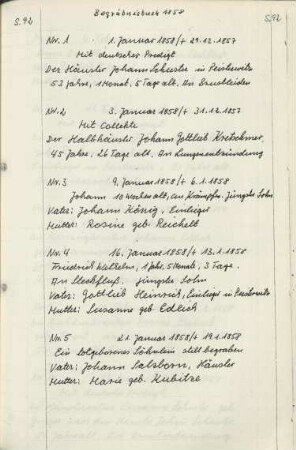 Begräbnisbuch 1858
S. 92
S. 92
Nr. 1 1. Januar 1858/+ 29.12.1857
Mit deutscher Predigt
Der Häusler Johann Schuster in
53 Jahre, 1 Monat, 5 Tage alt. An Brustleiden
Nr. 2 3. Januar 1858/+ 31.12.1857
Mit Collekte
Der Halbhäusler Johann Gottlieb Kretschmer,
45 Jahre, 26 Tage alt. An Lungenentzündung
Nr. 3 9. Januar 1858/+ 6.1.1858
Johann 10 Wochen alt, an Krämpfen. Jüngster Sohn
Vater: Johann König, Einlieger
Mutter: Rosine geb. Reichelt
Nr. 4 16. Januar 1858/+ 13.1.1858
Friedrich Wilhelm, 1 Jahr, 5 Monate, 3 Tage.
An Steckfluß. Jüngster Sohn
Vater: Gottlieb Heinrich, Einlieger in
Mutter: Susanne geb. Edlich
Nr. 5 21. Januar 1858/+ 19.1.1858
Ein totgeborenes Söhnlein still begraben
Vater: Johann Salzborn, Häusler
Mutter: Marie geb. Kubitze